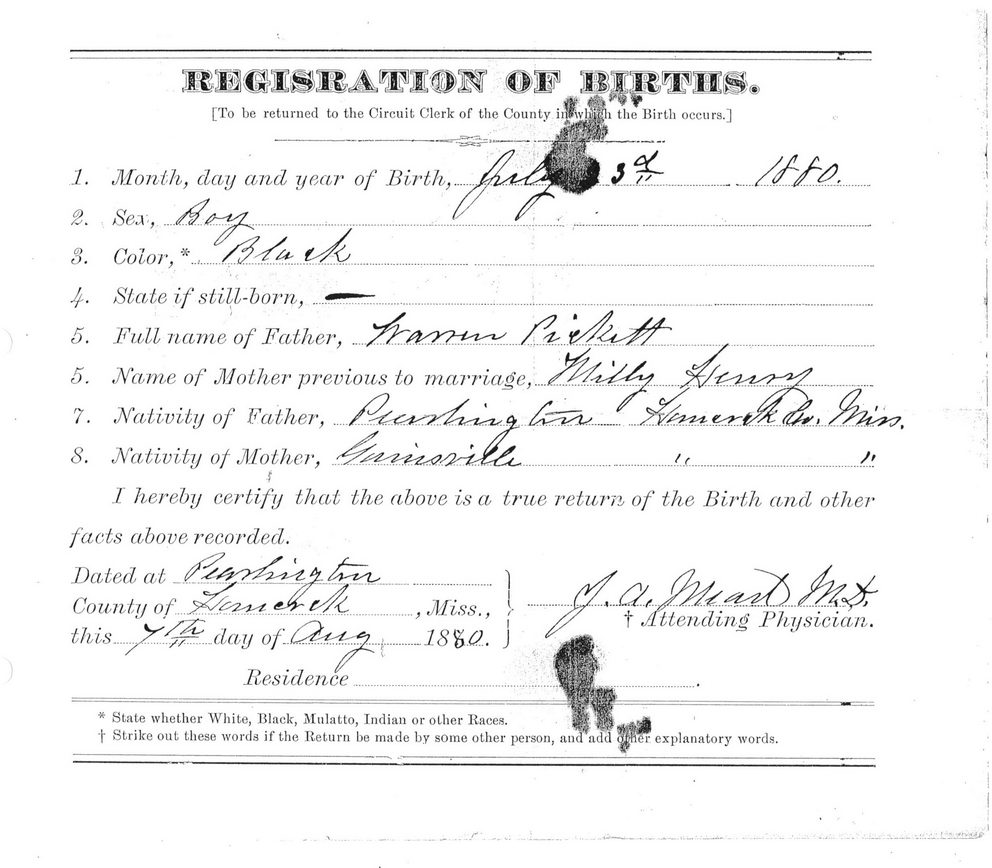 REGISRATION OF BIRTHS.
[To be returned to the Circuit Clerk of the County in which the Birth occurs.]
1. Month, day and year of Birth, July 3d 1880.
2. Sex, Boy
3. Color,* Black
4. State if still-born, —
5. Full name of Father, Warren Pickett
5. Name of Mother previous to marriage, Milly Henry
7. Nativity of Father, Pearlington Hancock Co. Miss.
8. Nativity of Mother, Gainsville " "
I hereby certify that the above is a true return of the Birth and other
facts above recorded.
Dated at Pearlington
County of Hancock, Miss., J. A. Mead M.D.
this 7th day of Aug 1880. † Attending Physician.
Residence
* State whether White, Black, Mulatto, Indian or other Races.
† Strike out these words if the Return be made by some other person, and add other explanatory words.